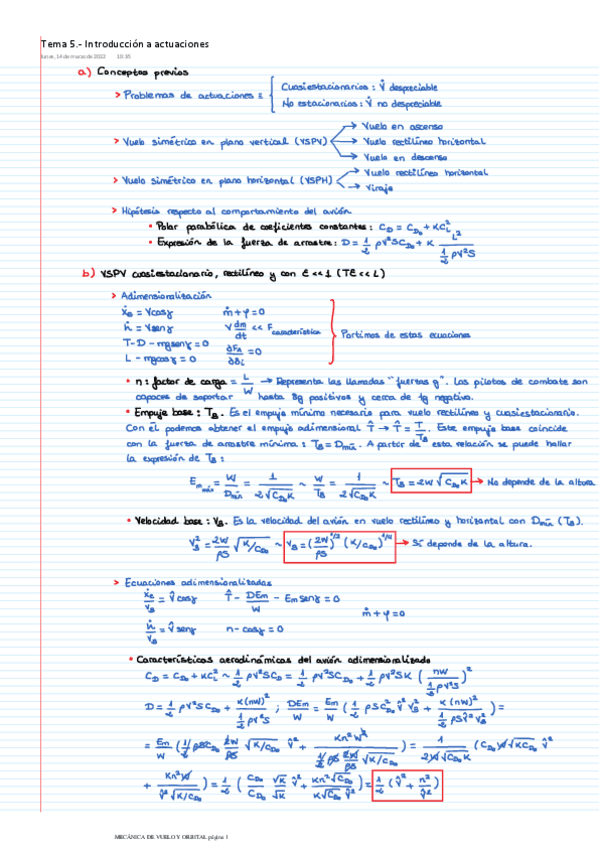 Tema 5.- Introducción a actuaciones
lunes, 14 de marzo de 2022 18:16
a) Conceptos previos
> Problemas de actuaciones = { Cuasiestacionarios: V̇ despreciable
No estacionarios: V̇ no despreciable
> Vuelo simétrico en plano vertical (VSPV) → Vuelo en ascenso
→ Vuelo rectilíneo horizontal
→ Vuelo en descenso
> Vuelo simétrico en plano horizontal (VSPH) → Vuelo rectilíneo horizontal
→ Viraje
> Hipótesis respecto al comportamiento del avión
• Polar parabólica de coeficientes constantes: C_D = C_D0 + KC_L²
• Expresión de la fuerza de arrastre: D = 1/2 ρV²SC_D0 + K L²/(1/2 ρV²S)
b) VSPV cuasiestacionario, rectilíneo y con ε<<1 (Tε<<L)
> Adimensionalización
ẋe = Vcosγ ṁ+φ=0
ḣ = Vsenγ V dm/dt << F característica
T-D-mgsenγ=0 ∂F_A/∂δ_i = 0 Partimos de estas ecuaciones
L-mgcosγ=0
• n: factor de carga = L/W → Representa las llamadas "fuertas g". Los pilotos de combate son
capaces de soportar hasta 8g positivos y cerca de 1g negativo.
• Empuje base: T_B. Es el empuje mínimo necesario para vuelo rectilíneo y cuasiestacionario.
Con él podemos obtener el empuje adimensional T̂ → T̂ = T/T_B. Este empuje base coincide
con la fuerza de arrastre mínima: T_B = D_mín. A partir de esta relación se puede hallar
la expresión de T_B:
E_máx = W/D_mín = 1/(2√(C_D0 K)) ~ W/T_B = 1/(2√(C_D0 K)) ~ T_B = 2W√(C_D0 K) → No depende de la altura
• Velocidad base: V_B. Es la velocidad del avión en vuelo rectilíneo y horizontal con D_mín (T_B).
V_B² = 2W/ρS √(K/C_D0) ~ V_B = (2W/ρS)^1/2 (K/C_D0)^1/4 → Sí depende de la altura.
> Ecuaciones adimensionalizadas
ẋe/V_B = V̂cosγ T̂ - DEm/W - Em senγ = 0
ṁ+φ=0
ḣ/V_B = V̂senγ n-cosγ=0
• Características aerodinámicas del avión adimensionalizado
C_D = C_D0 + KC_L² ~ 1/2 ρV²SC_D = 1/2 ρV²SC_D0 + 1/2 ρV²SK (nW/(1/2 ρV²S))²
D = 1/2 ρV²SC_D0 + K(nW)²/(1/2 ρV²S) ; DEm/W = Em/W (1/2 ρSC_D0 V̂²V_B² + K(nW)²/(1/2 ρSV̂²V_B²)) =
= Em/W (1/2 ρSC_D0 2W/ρS √(K/C_D0) V̂² + Kn²W²/(1/2 ρS 2W/ρS V̂² √(K/C_D0))) = 1/(2W√(C_D0 K)) (C_D0 W√(K/C_D0) V̂²
+ Kn²W/(V̂²√(K/C_D0))) = 1/2 (C_D0/C_D0 √K/√K V̂² + Kn²√C_D0/(K√C_D0 V̂²)) = 1/2 (V̂² + n²/V̂²)
MECÁNICA DE VUELO Y ORBITAL página 1